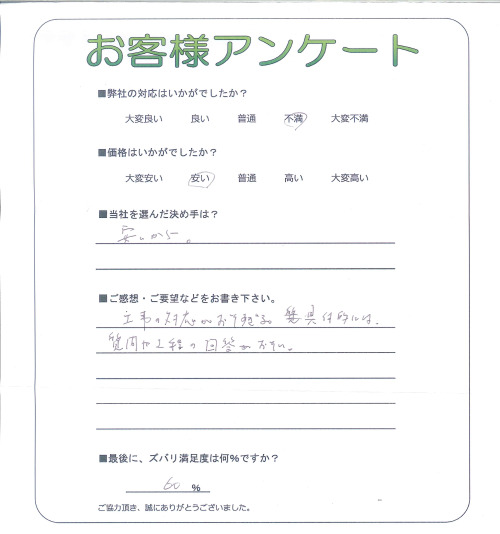 お客様アンケート
■弊社の対応はいかがでしたか？
大変良い 良い 普通 不満 大変不満
■価格はいかがでしたか？
大変安い 安い 普通 高い 大変高い
■当社を選んだ決め手は？
安いから。
■ご感想・ご要望などをお書き下さい。
工事の対応がおそすぎる 具体的には、
質問や工程の回答がおそい。
■最後に、ズバリ満足度は何％ですか？
60 ％
ご協力頂き、誠にありがとうございました。